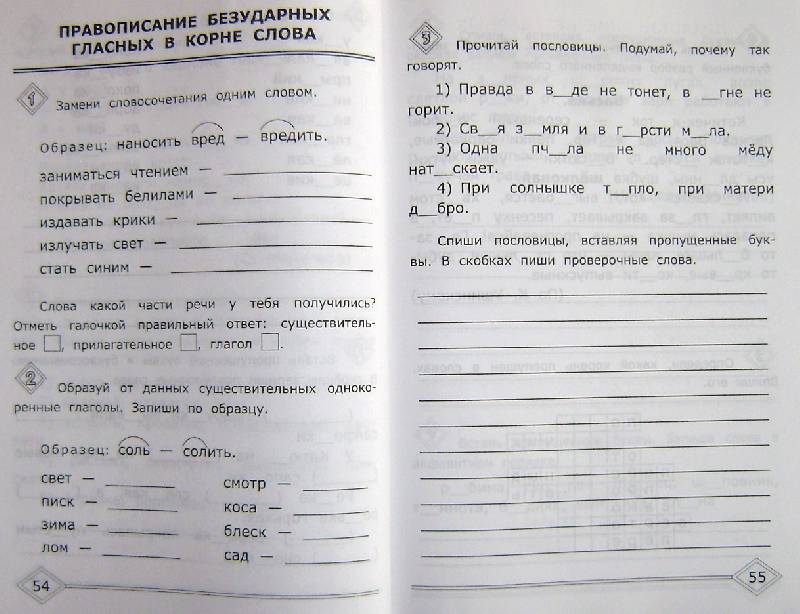 ПРАВОПИСАНИЕ БЕЗУДАРНЫХ
ГЛАСНЫХ В КОРНЕ СЛОВА
1 Замени словосочетания одним словом.
Образец: наносить вред — вредить.
заниматься чтением —
покрывать белилами —
издавать крики —
излучать свет —
стать синим —
Слова какой части речи у тебя получились?
Отметь галочкой правильный ответ: существитель-
ное □, прилагательное □, глагол □.
2 Образуй от данных существительных одноко-
ренные глаголы. Запиши по образцу.
Образец: соль — солить.
свет —
писк —
зима —
лом —
смотр —
коса —
блеск —
сад —
54
5 Прочитай пословицы. Подумай, почему так
говорят.
1) Правда в в__де не тонет, в __гне не
горит.
2) Св__я з__мля и в г__рсти м__ла.
3) Одна пч__ла не много мёду
нат__скает.
4) При солнышке т__пло, при матери
д__бро.
Спиши пословицы, вставляя пропущенные бук-
вы. В скобках пиши проверочные слова.
55